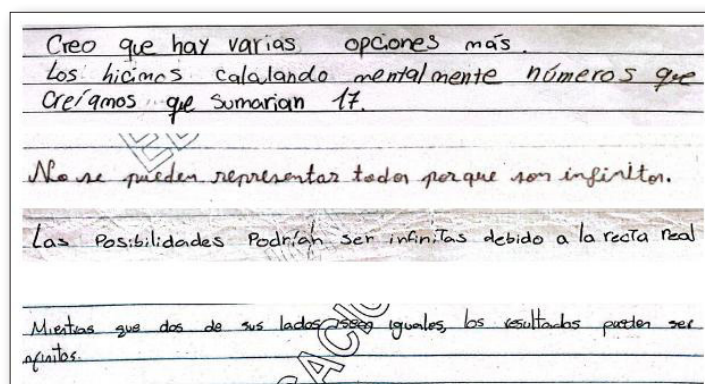 Creo que hay varias opciones más.
Los hicimos calalando mentalmente números que
creíamos que sumarian 17.
No se pueden representar todos porque son infinitos.
Las Posibilidades Podrían ser infinitas debido a la recta real
Mientras que dos de sus lados sean iguales, los resultados pueden ser
infinitos.